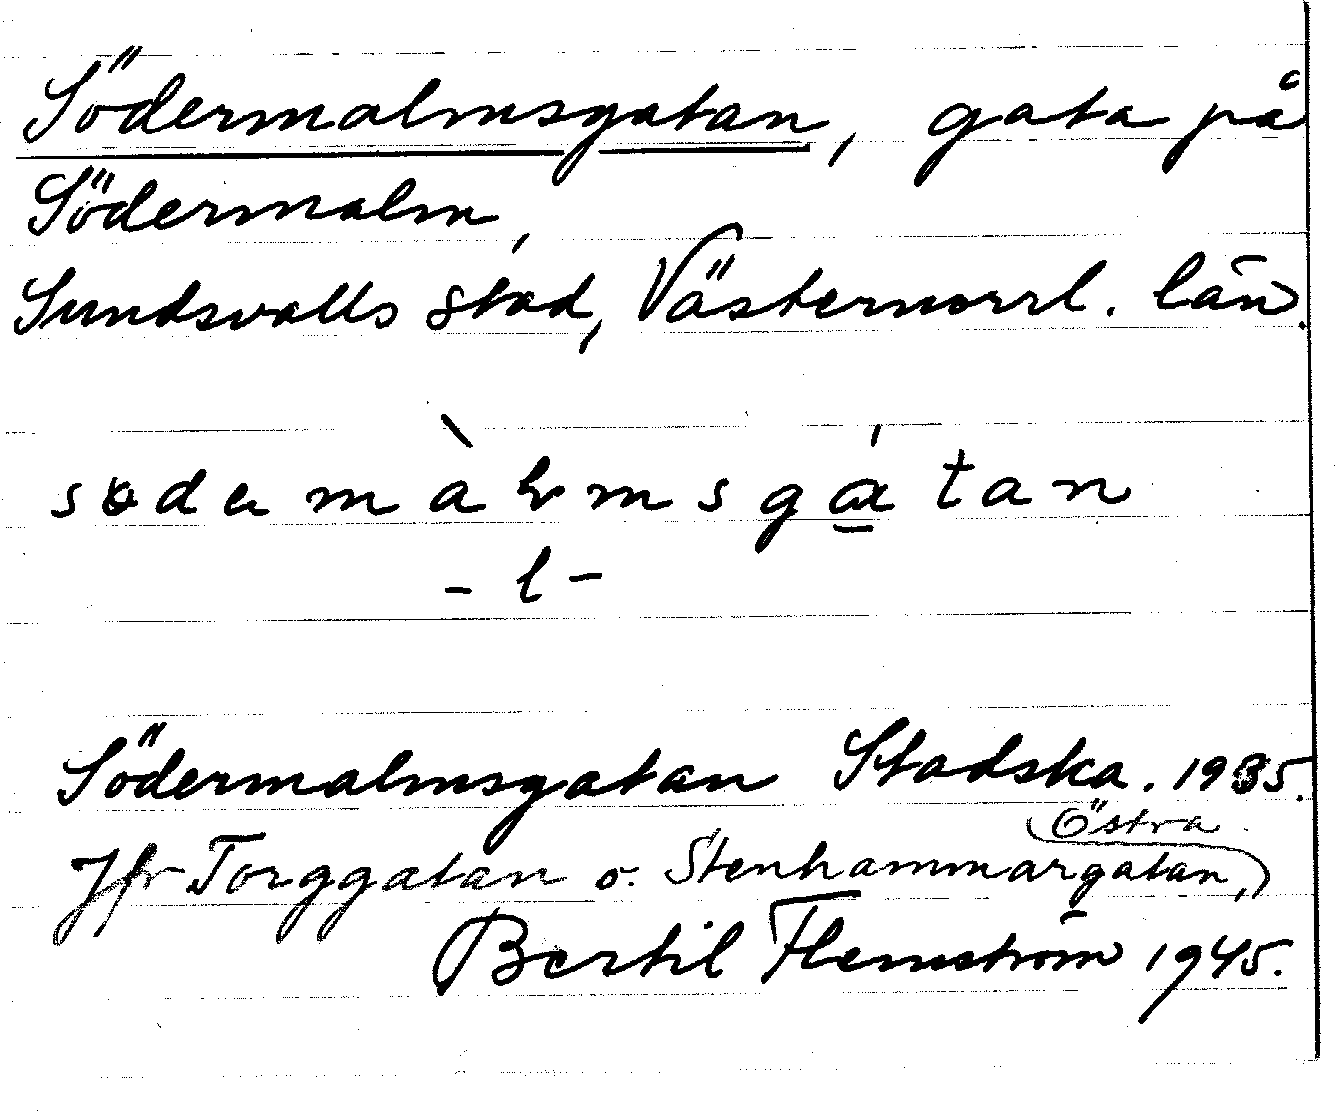 Södermalmsgatan, gata på
Södermalm,
Sundsvalls stad, Västernorrl. län.
södemàlmsgátan
- l -
Södermalmsgatan Stadska. 1935.
Östra
Jfr Torggatan o. Stenhammargatan,
Bertil Flemström 1945.